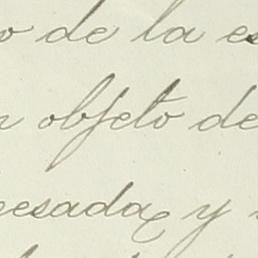 o de la es
n objeto de
esada, y